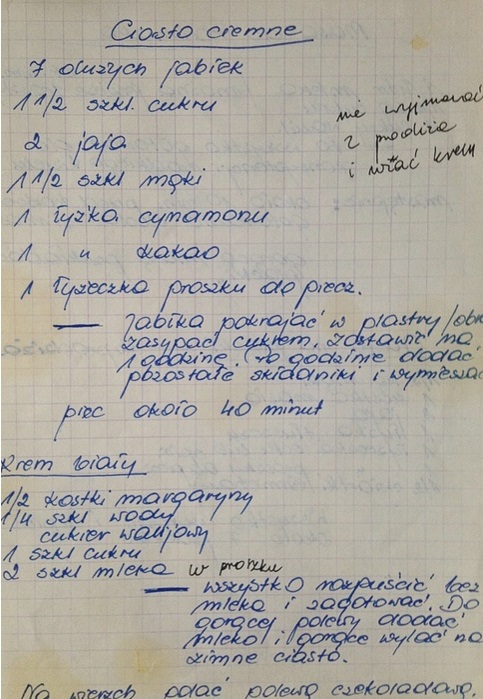 Ciasto ciemne
7 dużych jabłek
1 1/2 szkl. cukru
nie wyjmować
z prodiża
i wlać krem
2 jaja
1 1/2 szkl mąki
1 łyżka cynamonu
1 " kakao
1 łyżeczka proszku do piecz.
— Jabłka pokrajać w plastry /obr
zasypać cukrem, zostawić na
1 godzinę. Po godzinie dodać
pozostałe składniki i wymieszać
piec około 40 minut
Krem biały
1/2 kostki margaryny
1/4 szkl wody
cukier waniljowy
1 szkl cukru
2 szkl mleka w proszku
— wszystko rozpuścić bez
mleka i zagotować. Do
gorącej polewy dodać
mleko i gorące wylać na
zimne ciasto.
Na wierzch polać polewą czekoladową.